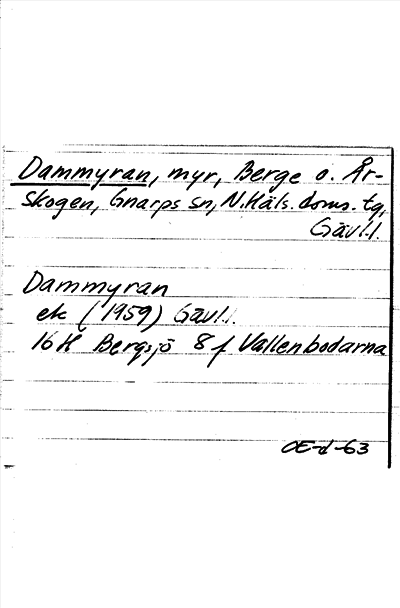 Dammyran, myr, Berge o. År-
skogen, Gnarps sn, N.Häls. doms. tg,
Gävl.l.
Dammyran
ek (1959) Gävl.l.
16H Bergsjö 8 f Vallenbodarna
OE-d-63